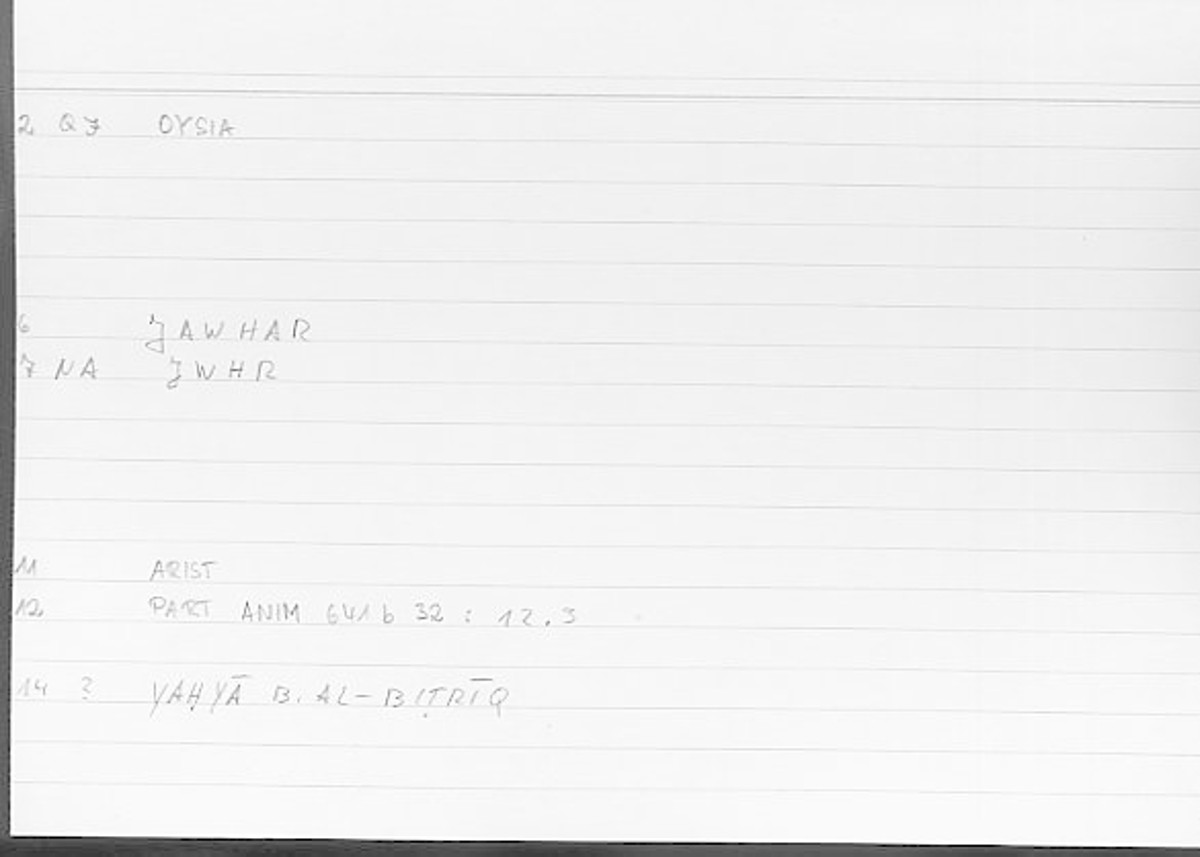 2 Q7 OYSIA
6 JAWHAR
7 NA JWHR
11 ARIST
12 PART ANIM 641 b 32 : 12.3
14 ? YAḤYĀ B. AL-BIṬRĪQ